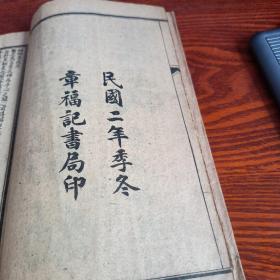 民國二年季冬
章福記書局印